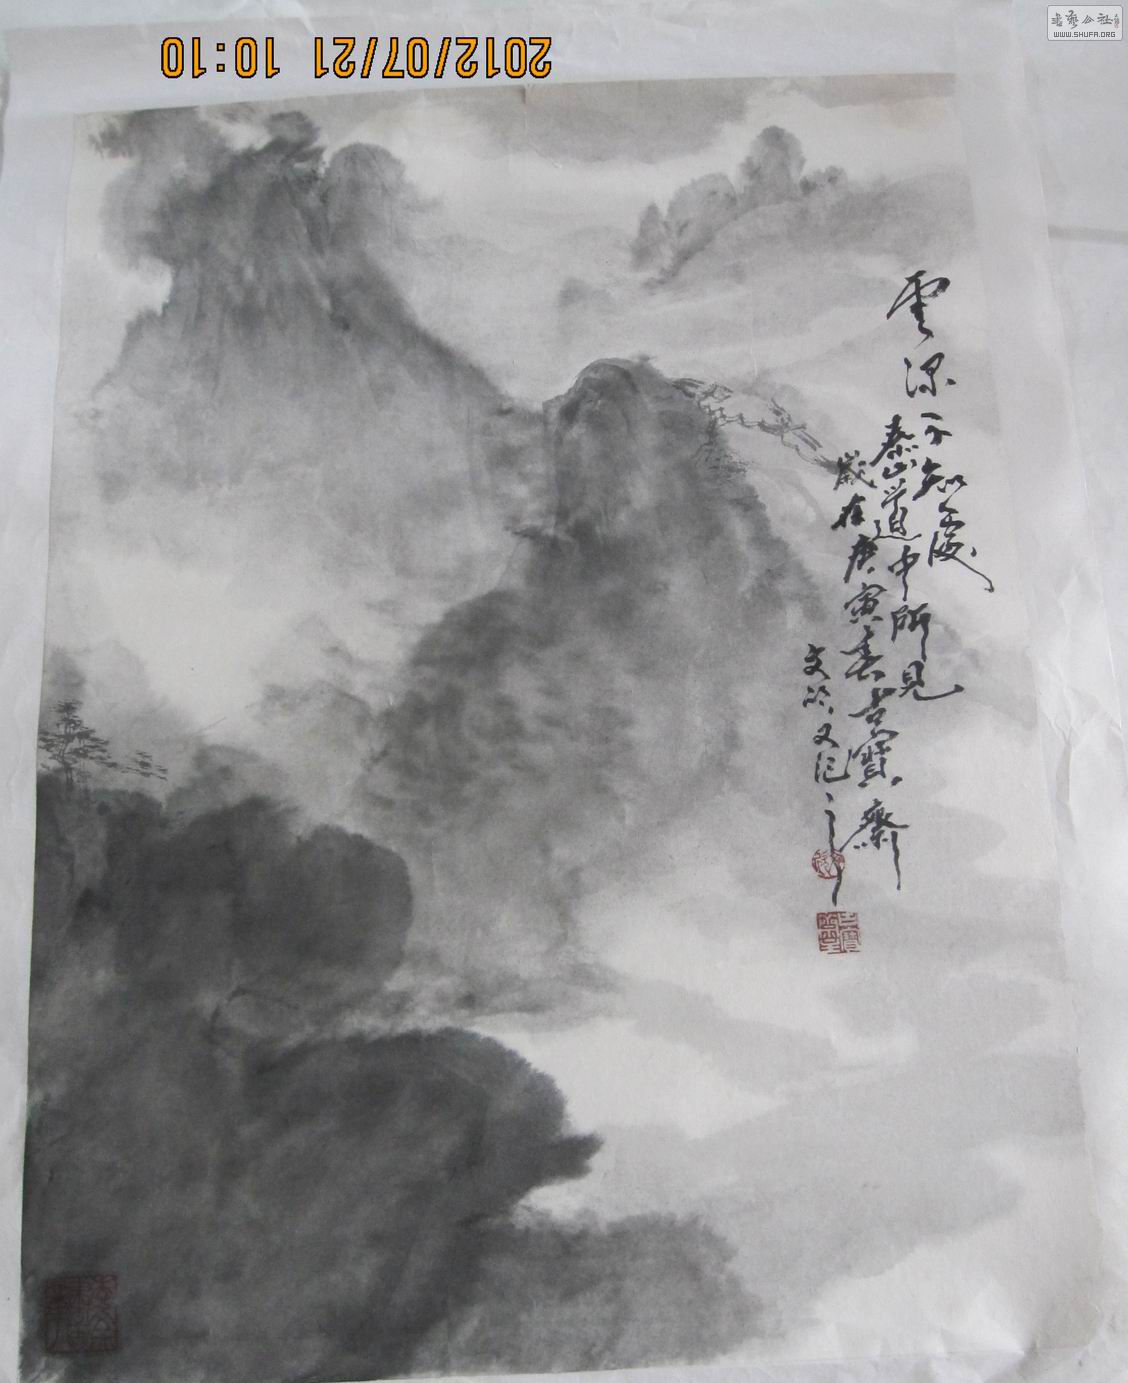 2012/07/21 10:10
書藝公社
WWW.SHUFA.ORG
雲深不知處
泰山道中所見
歲在庚寅春古寶齋
文
又記之